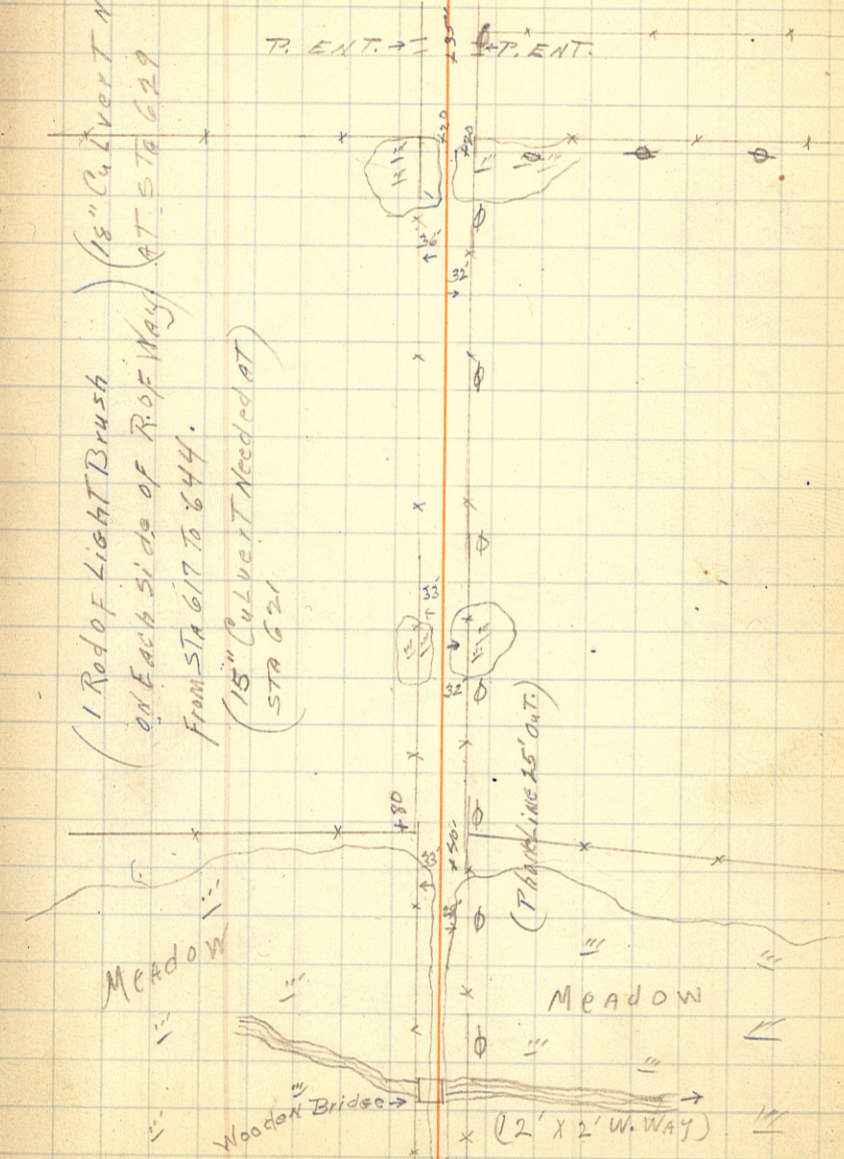 P. ENT. → ← P. ENT.
+35
+20 +20
(18" Culvert N
AT STA 629
(1 Rod OF Light Brush)
ON Each Side OF R. OF Way
From STA 617 To 644.
(15" Culvert Needed AT)
STA 621
32
33
32
+80
+50
33
(Phone Line 25' Out.)
Meadow
Meadow
Wooden Bridge →
(12' X 2' W. Way)